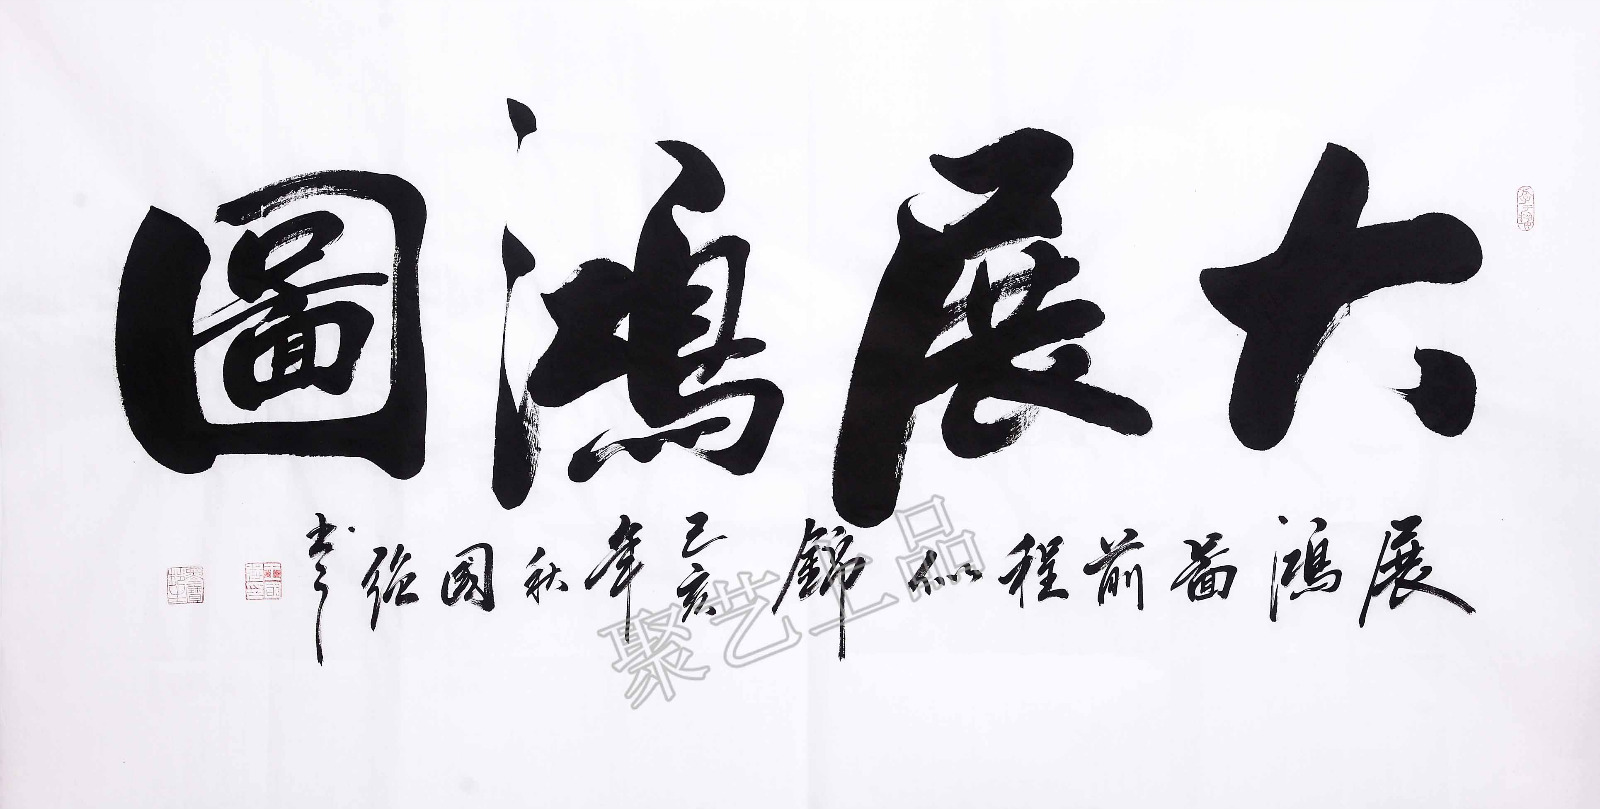 大展鴻圖
展鴻圖前程似錦己亥年秋國強書
聚艺上品